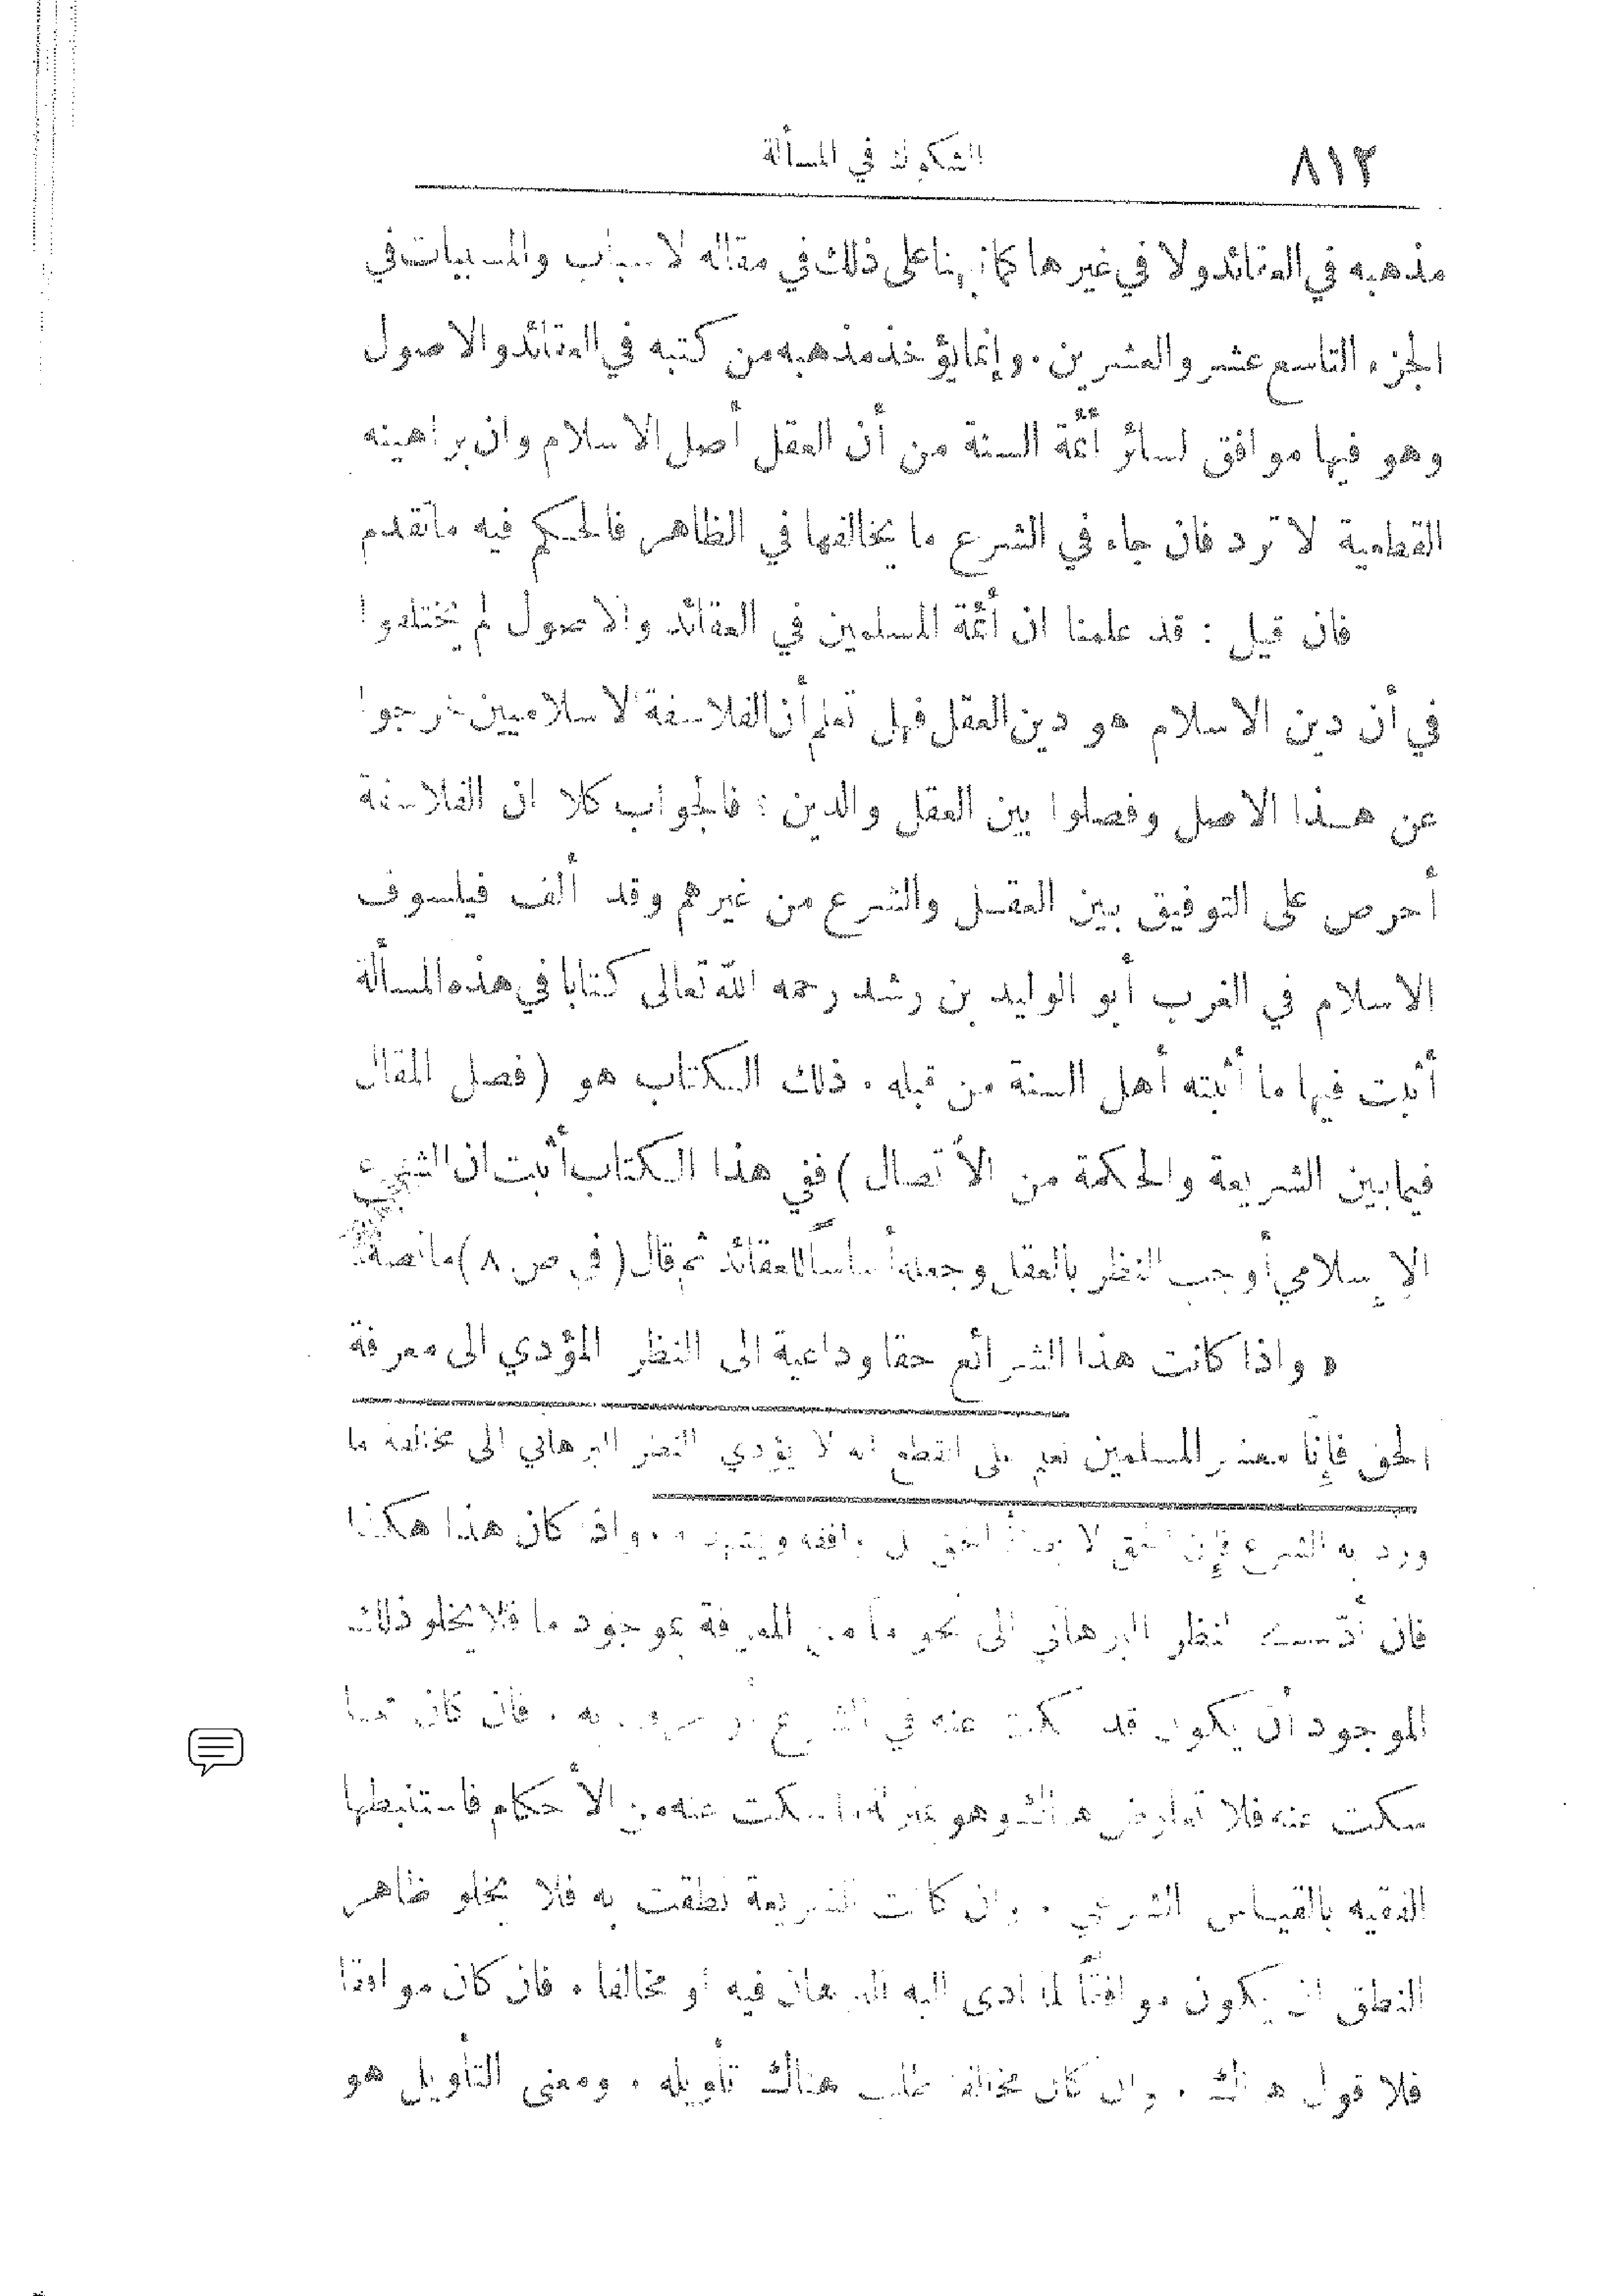 ٨١٢
الشكوك في المسألة
مذهبه في العقائد ولا في غيرها كما نبهنا على ذلك في مقالة الاسباب والمسببات في
الجزء التاسع عشر والعشرين . وإنما يؤخذ مذهبه من كتبه في العقائد والاصول
وهو فيها موافق لسائر أئمة السنة من أن العقل أصل الاسلام وان براهينه
القطعية لا ترد فان جاء في الشرع ما يخالفها في الظاهر فالحكم فيه ما تقدم
فان قيل : قد علمنا ان أئمة المسلمين في العقائد والاصول لم يختلفوا
في أن دين الاسلام هو دين العقل فهل تعلم أن الفلاسفة الاسلاميين خرجوا
عن هذا الاصل وفصلوا بين العقل والدين : فالجواب كلا ان الفلاسفة
أحرص على التوفيق بين العقل والشرع من غيرهم وقد ألف فيلسوف
الاسلام في الغرب أبو الوليد بن رشد رحمه الله تعالى كتابا في هذه المسألة
أثبت فيها ما أثبته أهل السنة من قبله . ذلك الكتاب هو (فصل المقال
فيما بين الشريعة والحكمة من الأتصال) ففي هذا الكتاب أثبت ان الشرع
الإسلامي أوجب النظر بالعقل وجعله أساسًا للعقائد ثم قال (في ص ٨) ما نصه
« واذا كانت هذا الشرائع حقا وداعية الى النظر المؤدي الى معرفة
الحق فإنا معشر المسلمين نعلم على القطع انه لا يؤدي النظر البرهاني الى مخالفة ما
ورد به الشرع فإن الحق لا يضاد الحق بل يوافقه ويشهد له . واذا كان هذا هكذا
فان أدّى النظر البرهاني الى نحو ما من المعرفة بموجود ما فلا يخلو ذلك
الموجود أن يكون قد سكت عنه في الشرع أو عرف به . فان كان مما
سكت عنه فلا تعارض هنالك وهو بمنزلة ما سكت عنه من الأحكام فاستنبطها
الفقيه بالقياس الشرعي . وان كانت الشريعة نطقت به فلا يخلو ظاهر
النطق ان يكون موافقًا لما ادى اليه البرهان فيه او مخالفا . فان كان موافقا
فلا قول هنالك . وان كان مخالفا طلب هنالك تأويله . ومعنى التأويل هو